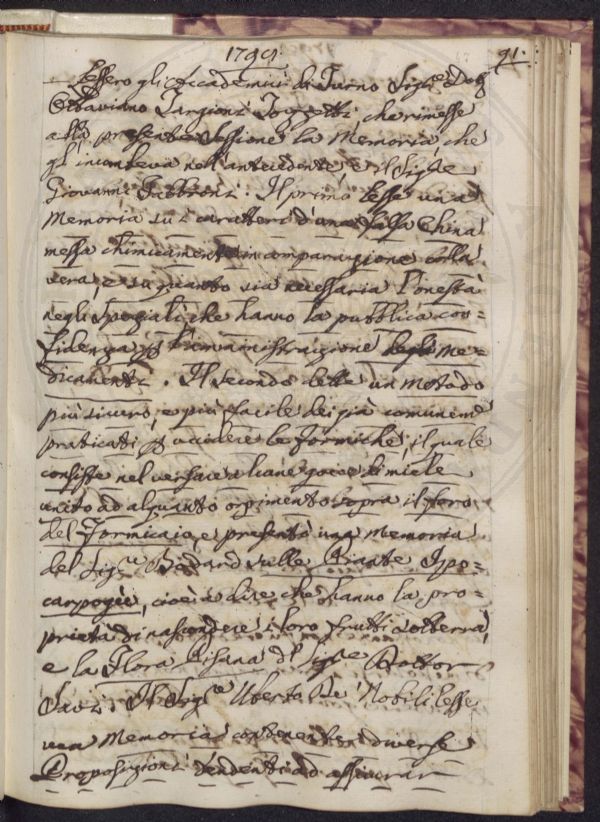 1799. 91.
Lessero gli Accademici di Turno Sig.e Dott.
Ottaviano Targioni Tozzetti, che rimesse
alla presente Sessione la Memoria che
gl'incombeva nell'antecedente, e il Sig.re
Giovanni Fabbroni. Il primo lesse una
Memoria sui caratteri d'una falsa China
messa chimicamente in comparazione colla
vera, e su quanto sia necessaria l'onestà
negli Speziali che hanno la pubblica con=
fidenza per l'amministrazione degli me=
dicamenti. Il secondo dette un metodo
più sicuro, e più facile dei già comunem.e
praticati per uccidere le formiche, il quale
consiste nel versare alcune gocce di miele
unito ad alquanto orpimento sopra il foro
del Formicaio, e presentò una Memoria
del Sig.re Bodard sulle Piante Ipo=
carpogee, cioè a dire che hanno la pro=
prietà di nascondere i loro frutti sotterra,
e la Flora Pisana del Sig.re Dottor
Savi. Il Sig.re Uberto De' Nobili lesse
una Memoria contenente diverse
Proposizioni tendenti ad assicurar